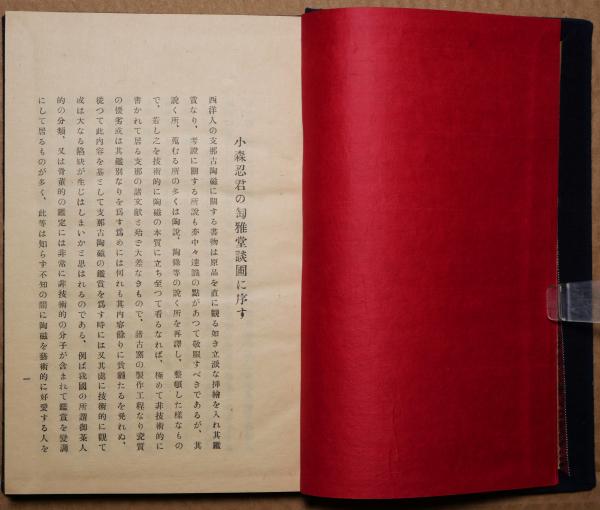 小森忍君の匋雅堂談圃に序す
西洋人の支那古陶磁に關する書物は原品を直に觀る如き立派な挿繪を入れ其鑑
賞なり、考證に關する所說も亦中々達識の點があつて敬服すべきであるが、其
說く所、蒐むる所の多くは陶說、陶錄等の說く所を再譯し、整頓した樣なもの
で、若し之を技術的に陶磁の本質に立ち至つて看るなれば、極めて非技術的に
書かれて居る支那の諸文獻と殆ど大差なきもので、諸古窯の製作工程なり瓷質
の優劣或は其鑑別なりを爲す爲めには何れも其內容餘りに貧弱たるを免れぬ、
從つて此內容を基として支那古陶磁の鑑賞を爲す時には又其處に技術的に觀て
或は大なる缺缺が生じはしまいかと思はれるのである、例ば我國の所謂御茶人
的の分類、又は骨董的の鑑定には非常に非技術的の分子が含まれて鑑賞を變調
にして居るものが多く、此等は知らず不知の間に陶磁を藝術的に好愛する人を
一